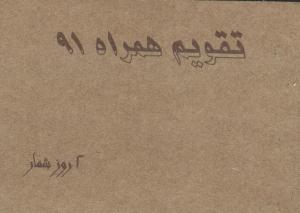 تقویم همراه ۹۱
۲ روز شمار